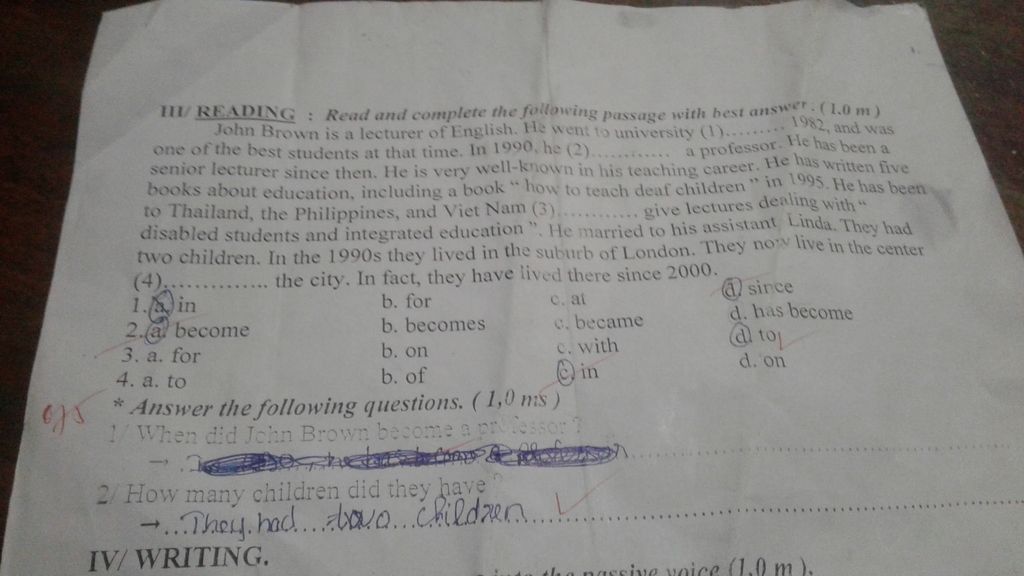 III/ READING : Read and complete the following passage with best answer : ( 1.0 m )
John Brown is a lecturer of English. He went to university (1)......... 1982, and was
one of the best students at that time. In 1990, he (2)............ a professor. He has been a
senior lecturer since then. He is very well-known in his teaching career. He has written five
books about education, including a book “ how to teach deaf children ” in 1995. He has been
to Thailand, the Philippines, and Viet Nam (3)............ give lectures dealing with “
disabled students and integrated education ”. He married to his assistant, Linda. They had
two children. In the 1990s they lived in the suburb of London. They now live in the center
(4)............... the city. In fact, they have lived there since 2000.
1. a. in b. for c. at d. since
2. a. become b. becomes c. became d. has become
3. a. for b. on c. with d. to
4. a. to b. of c. in d. on
* Answer the following questions. ( 1,0 ms )
1/ When did John Brown become a professor ?
→
2/ How many children did they have ?
→ ...They had ... two ... children
IV/ WRITING.
the passive voice (1.0 m ).